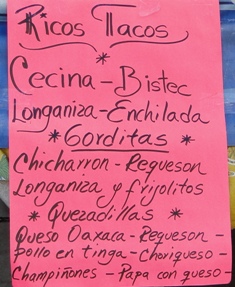 Ricos Tacos
*
Cecina - Bistec
Longaniza - Enchilada
* Gorditas *
Chicharron - Requeson
Longaniza y frijolitos
* Quezadillas *
Queso Oaxaca - Requeson -
Pollo en tinga - Choriqueso -
Champiñones - Papa con queso -